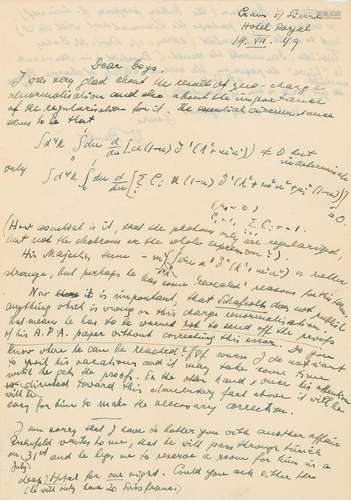 Hotel Royal
19. VII. 49
Dear Boys,
I was very glad about the result of zero-charge
renormalisation and also about the importance
of the regularisation for it. The essential circumstance
seems to be that
≠ 0 but
indeterminate
only
= 0.
(How essential is it, that the photons only are regularized,
but not the electrons or the whole expression?).
His Majesties term
is rather
strange, but perhaps he has some reasons for this form.
Now it is important, that Schafroth does not publish
anything which is wrong on this charge renormalisation.
that means he has to be warned not to send off the proofs
of his H.P.A. paper without correcting this error. Do you
know where he can be reached? Of course I do not want
to spoil his vacations and it may take some time
until he gets the proofs. On the other hand, once his attention
will be directed toward this elementary fact above it will be
easy for him to make the necessary correction.
I am sorry that I have to bother you with another affair
writes to me, that he will pass through Zürich
on 31st and he begs me to reserve a room for him in a
July
cheap Hotel for one night. Could you ask either the
(he will only have 20 Swiss francs)